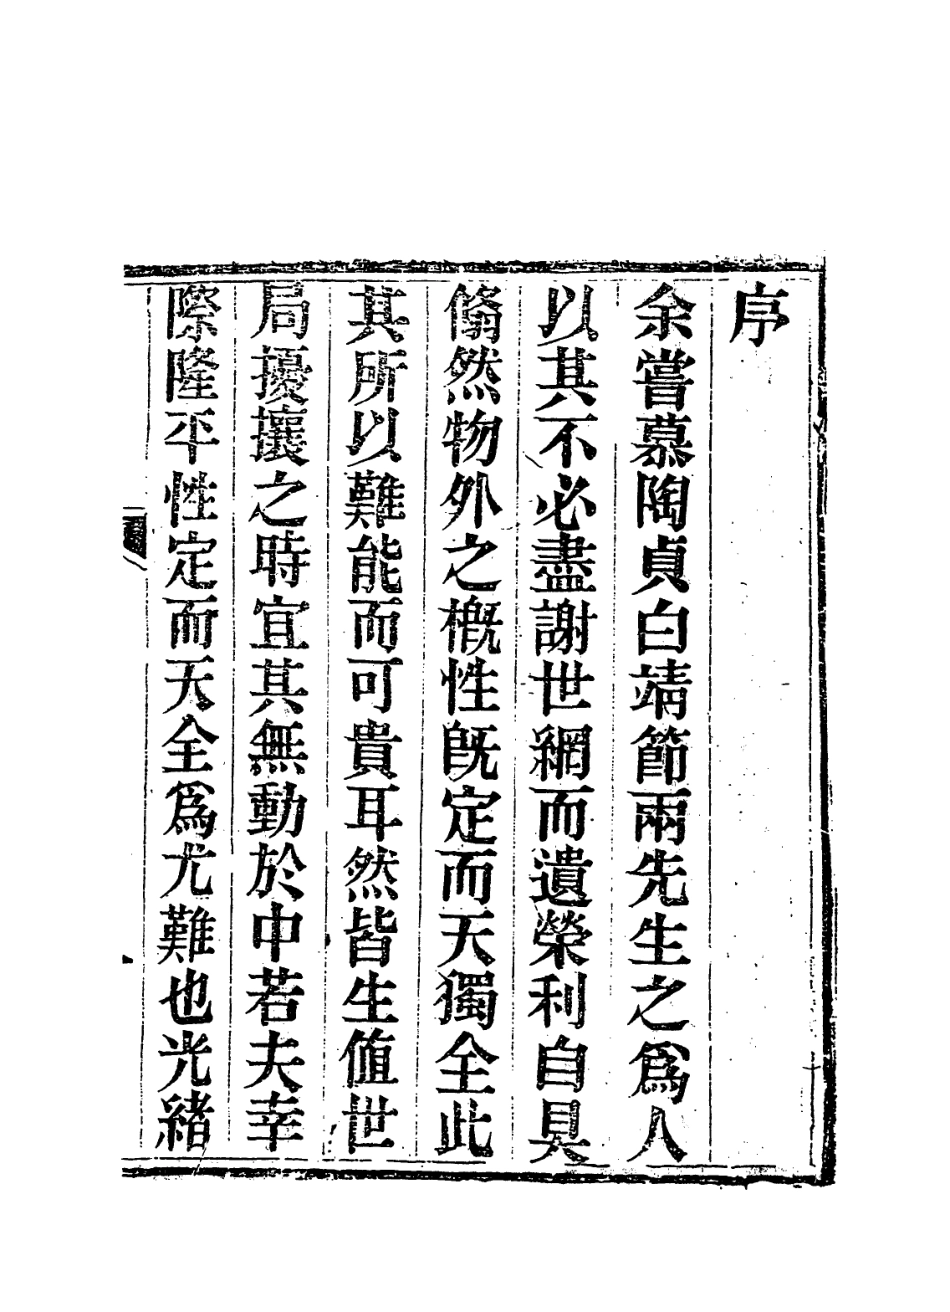 序
余嘗慕陶貞白靖節兩先生之爲人
以其不必盡謝世網而遺榮利自具
翛然物外之槪性旣定而天獨全此
其所以難能而可貴耳然皆生値世
局擾攘之時宜其無動於中若夫幸
際隆平性定而天全爲尤難也光緖